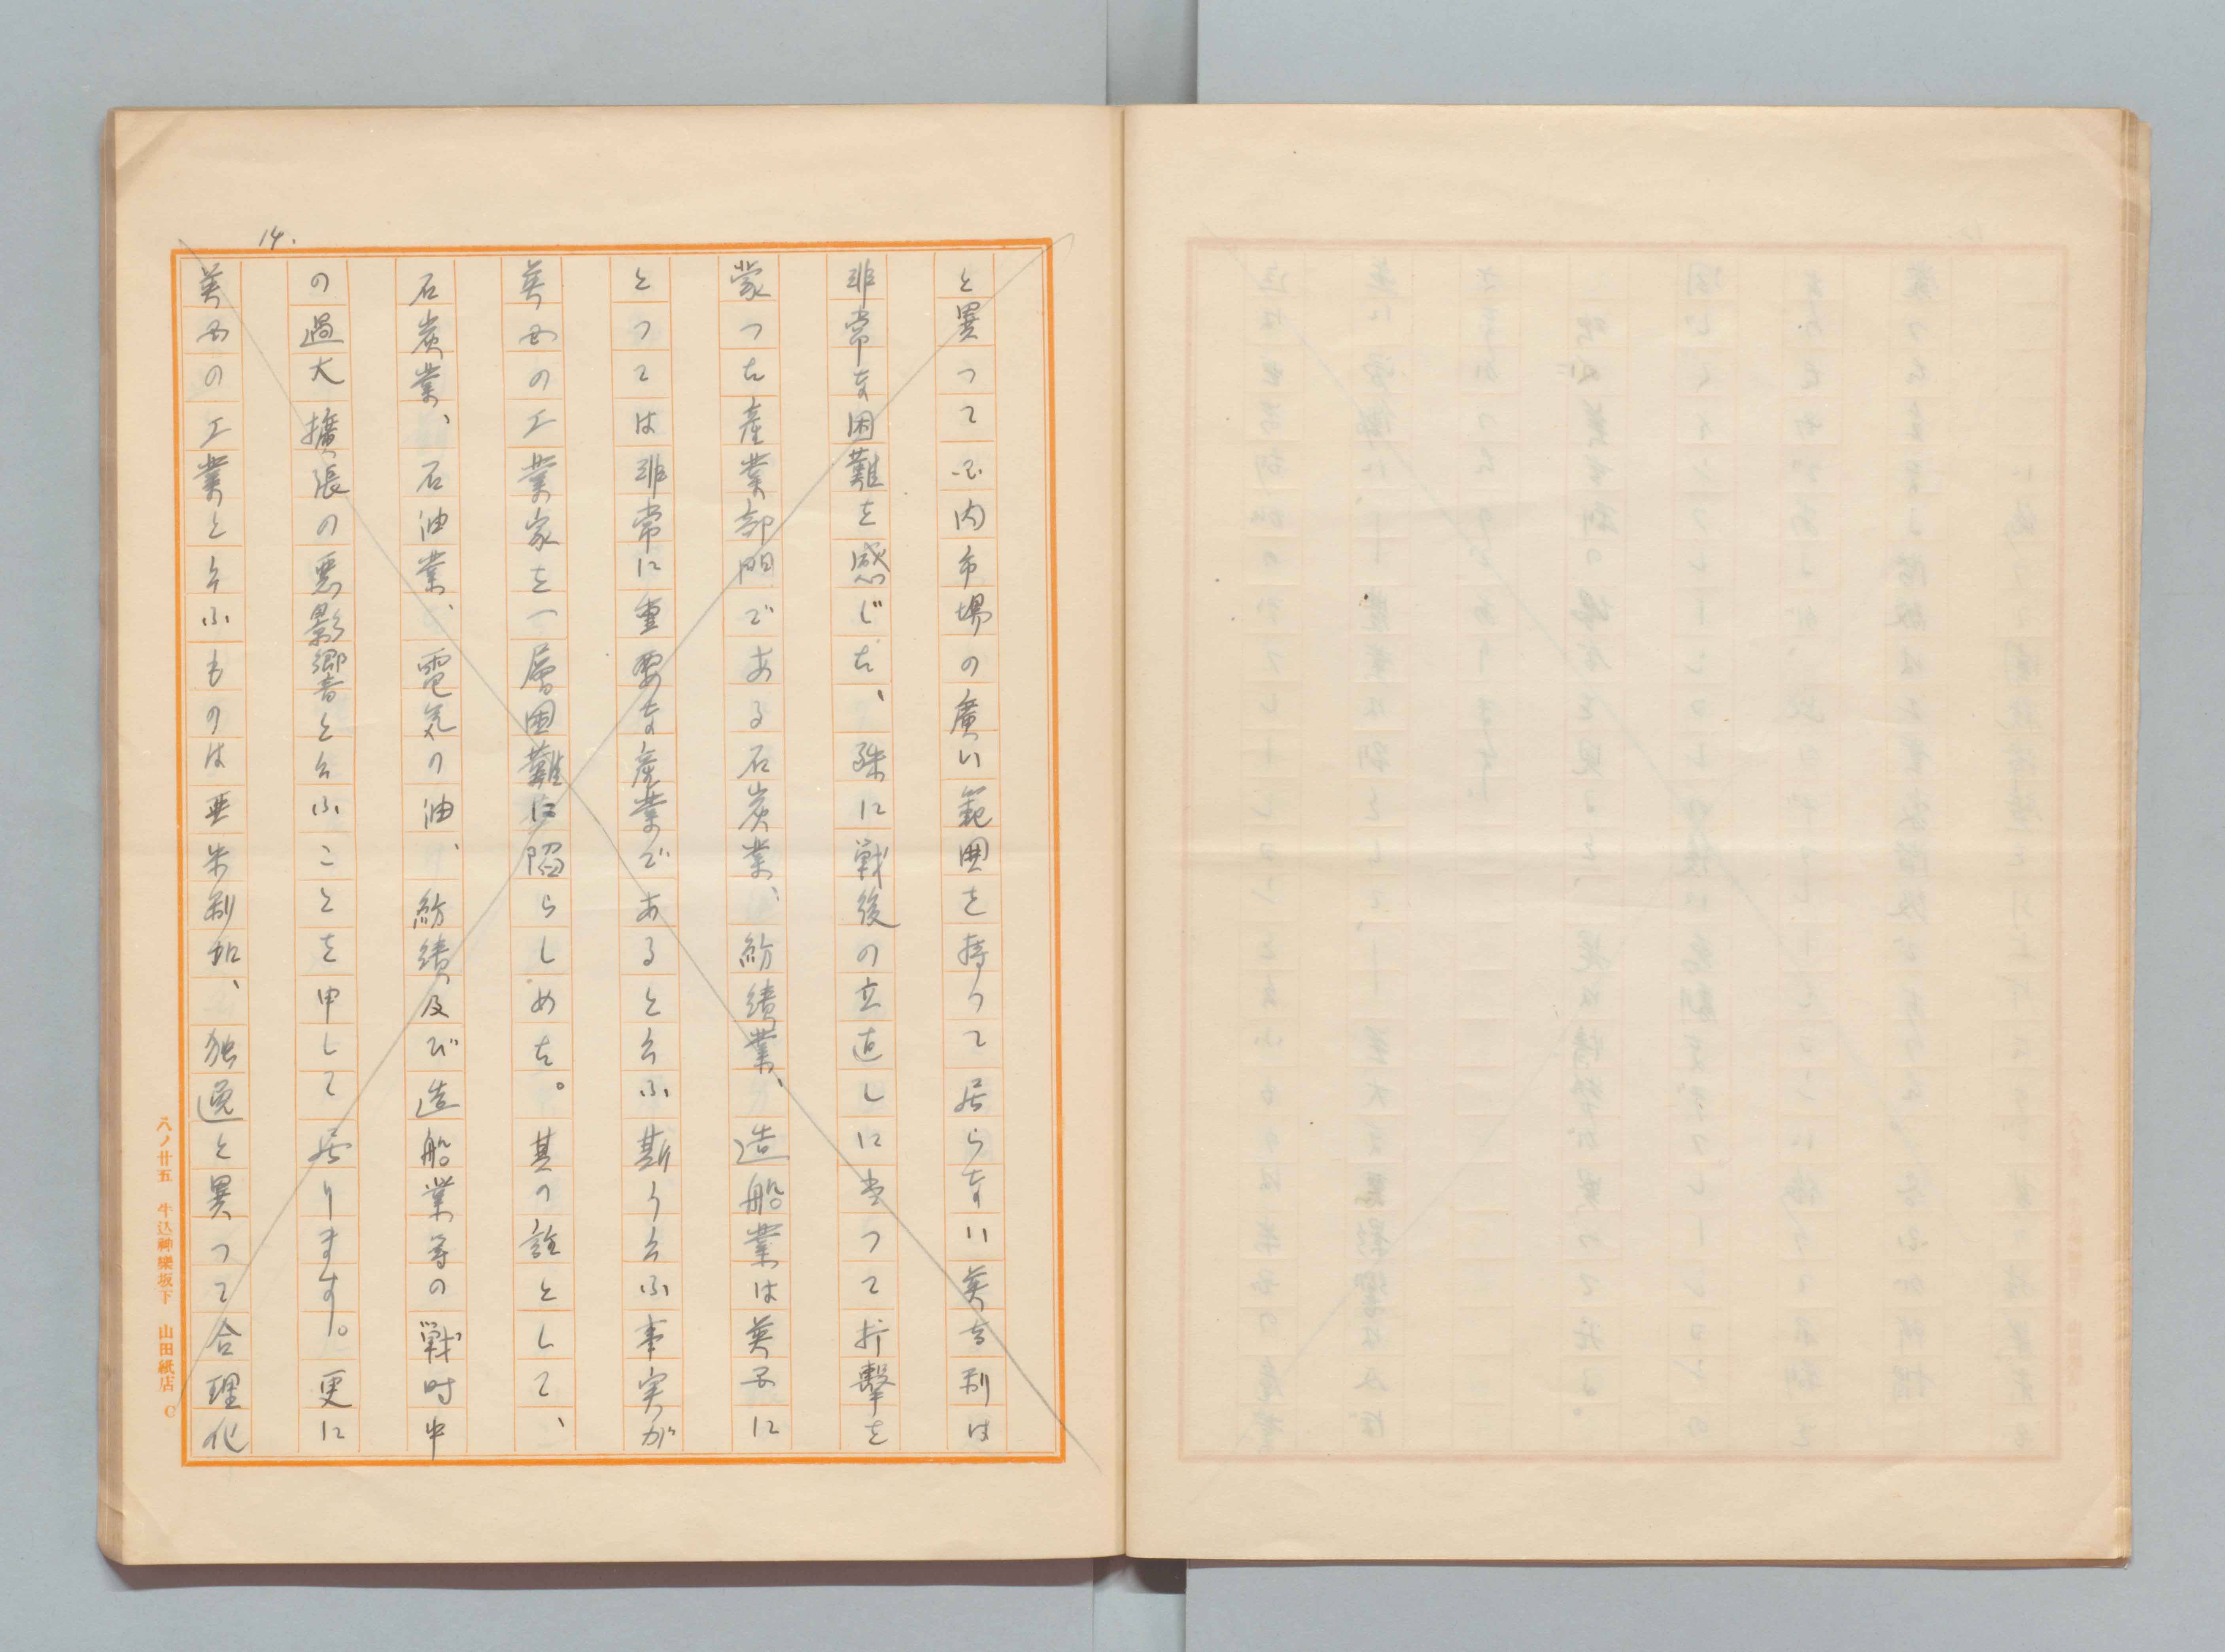 14.
と異つて国内市場の廣い範囲を持つて居らない英吉利は
非常な困難を感じた、殊に戦後の立直しに当つて打撃を
蒙つた産業部門である石炭業、紡績業、造船業は英国に
とつては非常に重要な産業であると云ふ斯う云ふ事実が
英国の工業家を一層困難に陥らしめた。其の証として、
石炭業、石油業、電気の油、紡績及び造船業等の戦時中
の過大擴張の悪影響と云ふことを申して居ります。更に
英国の工業と云ふものは亜米利加、独逸と異つて合理化
八ノ廿五 牛込神樂坂下 山田紙店 C